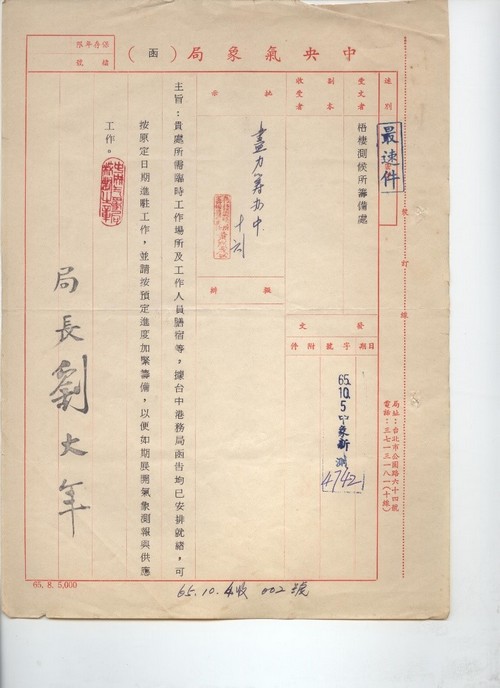 中央氣象局（函）
保存年限
檔號
速別
最速件
受文者
梧棲測候所籌備處
副本
收受者
批示
盡力籌辦中
擬辦
發文
日期
字號
附件
65.10.5
中象新測
4742
主旨：貴處所需臨時工作場所及工作人員膳宿等，據台中港務局函告均已安排就緒，可
按原定日期進駐工作，並請按預定進度加緊籌備，以便如期展開氣象測報與供應
工作。
局長劉大年
裝訂線
局址：台北市公園路六十四號
電話：三七一三一八一（十線）
65. 8. 5,000
65.10.4收 002號